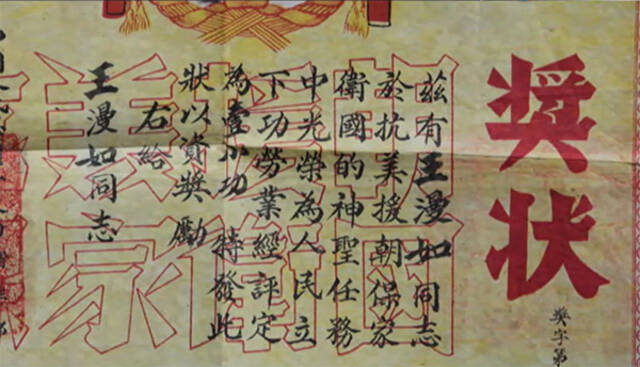 奬状
奬字第
茲有王漫如同志
於抗美援朝保家
衛國的神聖任務
中光榮為人民立
下功勞業經評定
為壹小功特發此
狀以資奬勵
右給
王漫如同志
美援朝
家衛國